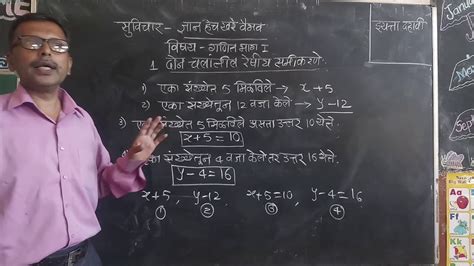 सुविचार - ज्ञान हेच खरे वैभव
विषय - गणित भाग I
इयत्ता दहावी
1. दोन चलातील रेषीय समीकरणे
1) एका संख्येत 5 मिळविले → x + 5
2) एका संख्येतून 12 वजा केले → y - 12
3) एका संख्येत 5 मिळविले असता उत्तर 10 येते.
x + 5 = 10
एका संख्येतून 4 वजा केले तर उत्तर 16 येते.
y - 4 = 16
x + 5 , y - 12 x + 5 = 10 , y - 4 = 16
① ② ③ ④
January
A a
Apple